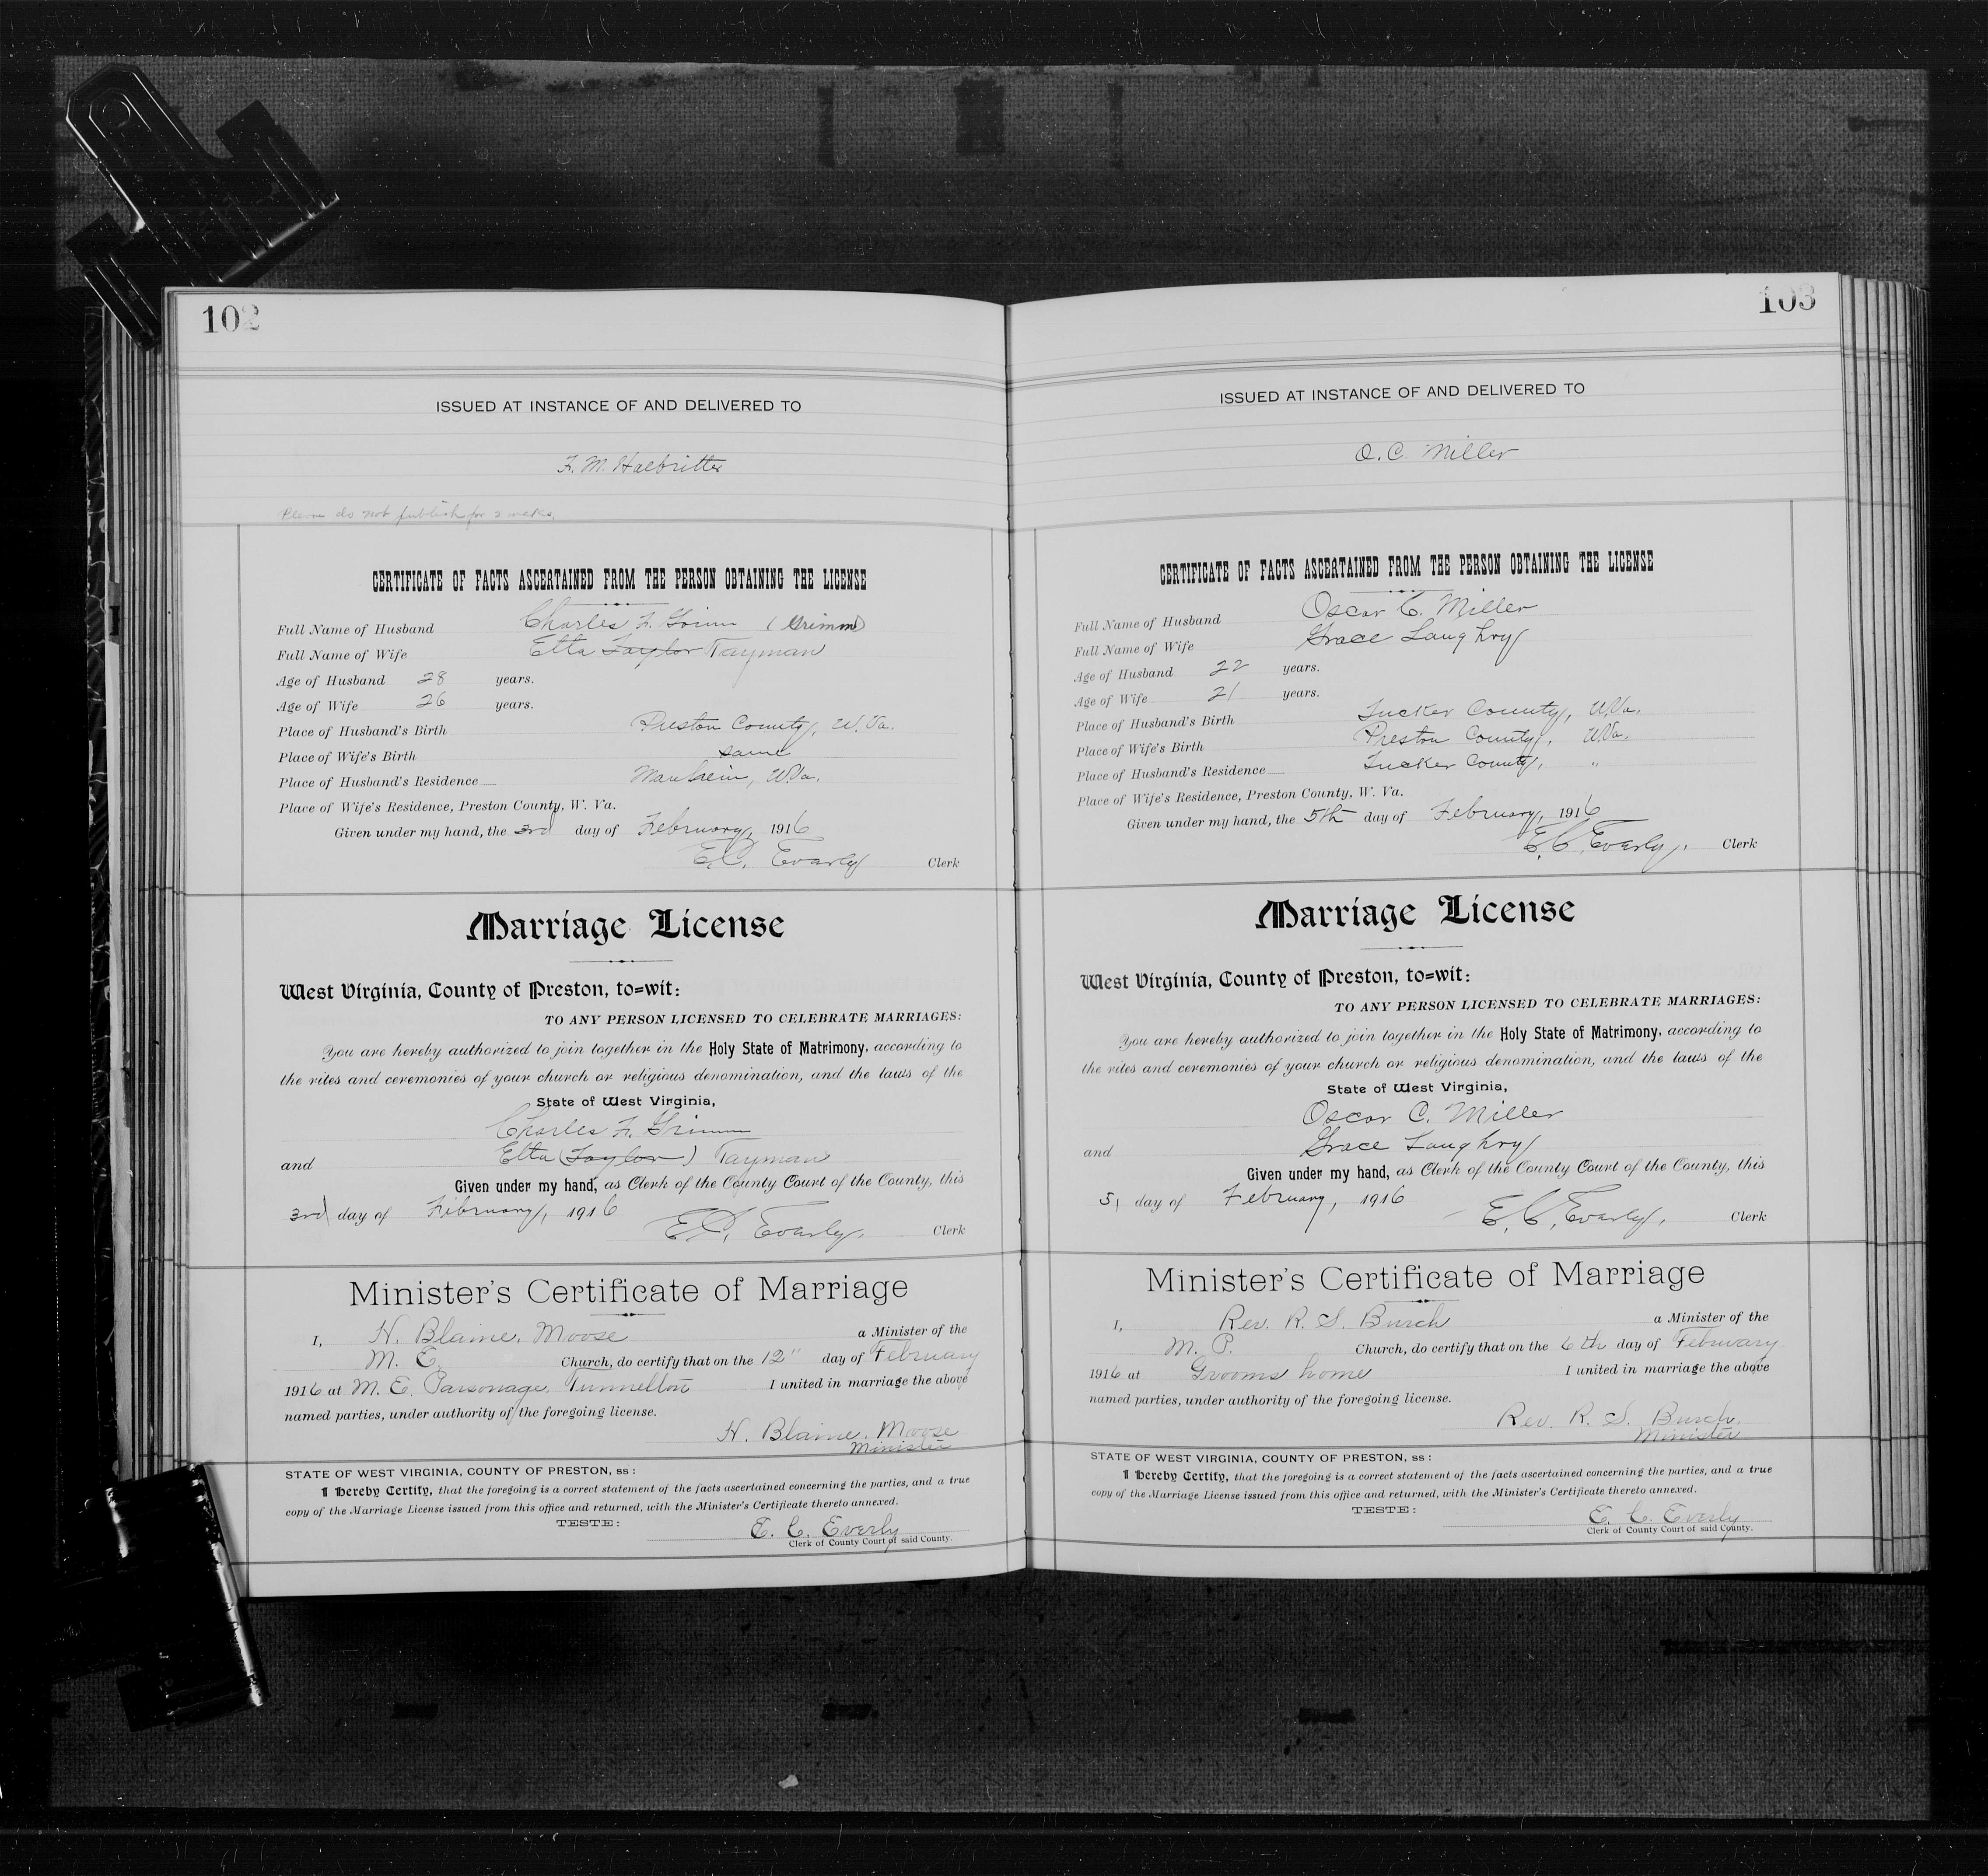 102
ISSUED AT INSTANCE OF AND DELIVERED TO
F. M. Halbritter
Please do not publish for 2 weeks.
CERTIFICATE OF FACTS ASCERTAINED FROM THE PERSON OBTAINING THE LICENSE
Full Name of Husband Charles F. Grimm (Grimm)
Full Name of Wife Etta Taylor Tayman
Age of Husband 28 years.
Age of Wife 26 years.
Place of Husband's Birth Preston County, W. Va.
Place of Wife's Birth same
Place of Husband's Residence Manheim, W. Va.
Place of Wife's Residence, Preston County, W. Va.
Given under my hand, the 3rd day of February, 1916
E. C. Everly Clerk
Marriage License
West Virginia, County of Preston, to=wit:
TO ANY PERSON LICENSED TO CELEBRATE MARRIAGES:
You are hereby authorized to join together in the Holy State of Matrimony, according to
the rites and ceremonies of your church or religious denomination, and the laws of the
State of West Virginia,
Charles F. Grimm
and Etta (Taylor) Tayman
Given under my hand, as Clerk of the County Court of the County, this
3rd day of February, 1916
E. C. Everly. Clerk
Minister's Certificate of Marriage
I, H. Blaine. Moose a Minister of the
M. E. Church, do certify that on the 12" day of February
1916 at M. E. Parsonage, Tunnelton I united in marriage the above
named parties, under authority of the foregoing license.
H. Blaine. Moose
Minister
STATE OF WEST VIRGINIA, COUNTY OF PRESTON, ss:
I Hereby Certify, that the foregoing is a correct statement of the facts ascertained concerning the parties, and a true
copy of the Marriage License issued from this office and returned, with the Minister's Certificate thereto annexed.
TESTE:
E. C. Everly
Clerk of County Court of said County.
103
ISSUED AT INSTANCE OF AND DELIVERED TO
O. C. Miller
CERTIFICATE OF FACTS ASCERTAINED FROM THE PERSON OBTAINING THE LICENSE
Full Name of Husband Oscar C. Miller
Full Name of Wife Grace Laughry
Age of Husband 22 years.
Age of Wife 21 years.
Place of Husband's Birth Tucker County, W. Va.
Place of Wife's Birth Preston County, W. Va.
Place of Husband's Residence Tucker County, "
Place of Wife's Residence, Preston County, W. Va.
Given under my hand, the 5th day of February, 1916
E. C. Everly. Clerk
Marriage License
West Virginia, County of Preston, to=wit:
TO ANY PERSON LICENSED TO CELEBRATE MARRIAGES:
You are hereby authorized to join together in the Holy State of Matrimony, according to
the rites and ceremonies of your church or religious denomination, and the laws of the
State of West Virginia,
Oscar C. Miller
and Grace Laughry
Given under my hand, as Clerk of the County Court of the County, this
5, day of February, 1916
E. C. Everly. Clerk
Minister's Certificate of Marriage
I, Rev. R. S. Burch a Minister of the
M. P. Church, do certify that on the 6th day of February
1916 at Grooms home I united in marriage the above
named parties, under authority of the foregoing license.
Rev. R. S. Burch.
Minister
STATE OF WEST VIRGINIA, COUNTY OF PRESTON, ss:
I Hereby Certify, that the foregoing is a correct statement of the facts ascertained concerning the parties, and a true
copy of the Marriage License issued from this office and returned, with the Minister's Certificate thereto annexed.
TESTE:
E. C. Everly
Clerk of County Court of said County.